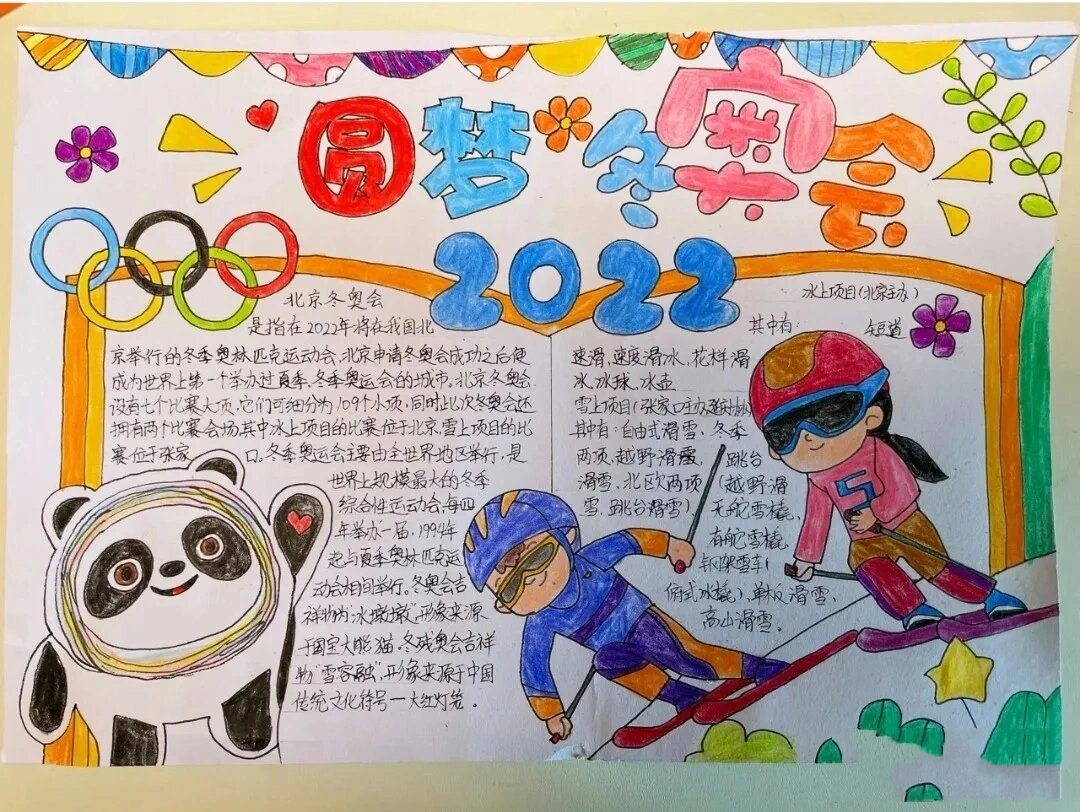 圆梦冬奥会
2022
北京冬奥会
是指在2022年将在我国北
京举行的冬季奥林匹克运动会,北京申请冬奥会成功之后便
成为世界上第一个举办过夏季、冬季奥运会的城市.北京冬奥会
设有七个比赛大项.它们可细分为109个小项.同时此次冬奥会还
拥有两个比赛会场其中冰上项目的比赛位于北京.雪上项目的比
赛位于张家口.冬季奥运会主要由全世界地区举行.是
世界上规模最大的冬季
综合性运动会.每四
年举办一届,1994年
起与夏季奥林匹克运
动会相间举行.冬奥会吉
祥物为"冰墩墩"形象来源
于国宝大熊猫.冬残奥会吉祥
物"雪容融",形象来源于中国
传统文化符号一大红灯笼。
冰上项目(北京主办)
其中有: 短道
速滑,速度滑冰、花样滑
冰,冰球、冰壶
雪上项目(张家口主办
其中有:自由式滑雪、冬季
两项、越野滑雪 跳台
滑雪、北欧两项(越野滑
雪、跳台滑雪) 无舵雪橇,
有舵雪橇
钢架雪车(
俯式冰橇)、单板滑雪、
高山滑雪.